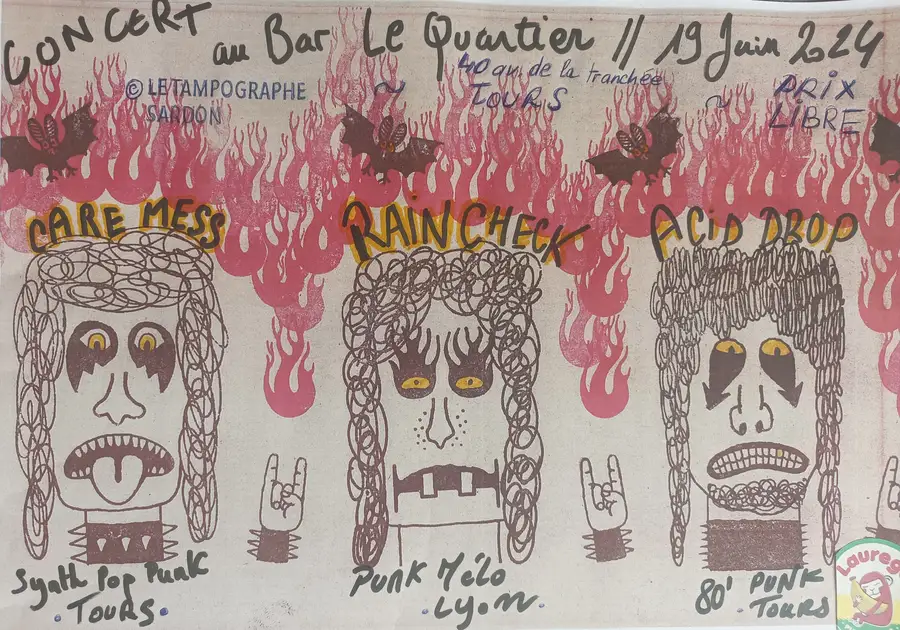 CONCERT au Bar Le Quartier // 19 Juin 2024
© LE TAMPOGRAPHE
SARDON
~ 40 an de la tranchée ~
TOURS
PRIX
LIBRE
CARE MESS
RAIN CHECK
ACID DROP
Synth Pop Punk
· TOURS ·
PUNK Mélo
· Lyon ·
80' PUNK
· TOURS
Laureg